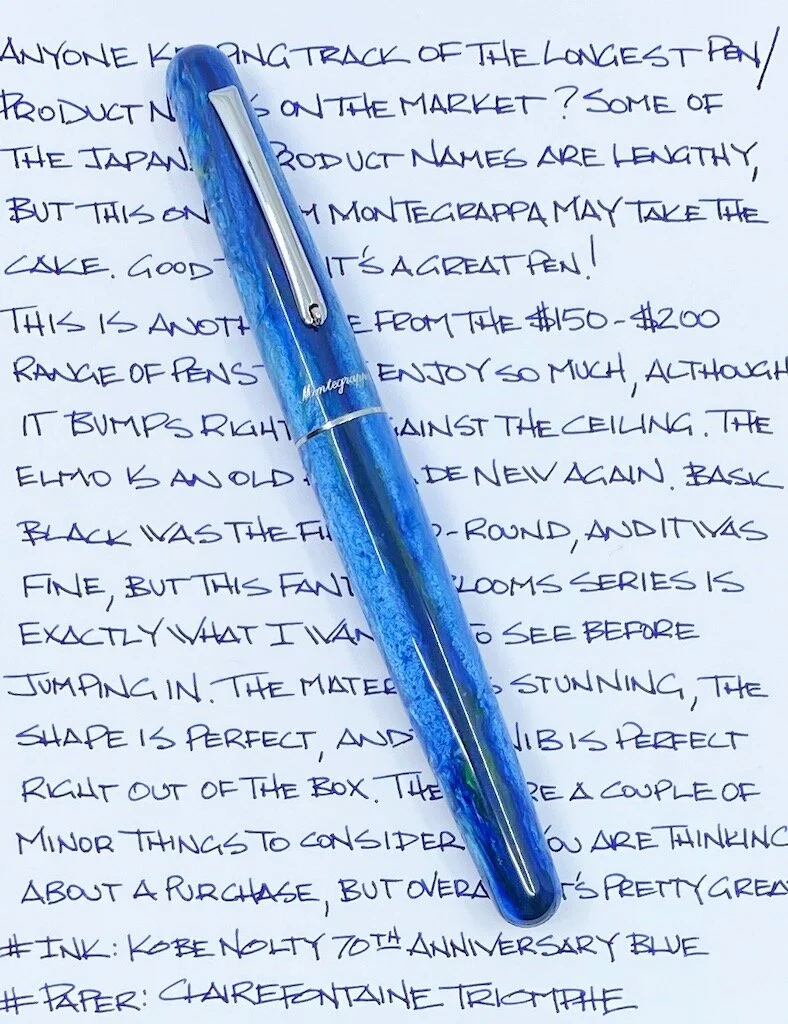 ANYONE KEEPING TRACK OF THE LONGEST PEN/
PRODUCT N S ON THE MARKET? SOME OF
THE JAPAN. PRODUCT NAMES ARE LENGTHY,
BUT THIS ON M MONTEGRAPPA MAY TAKE THE
CAKE. GOOD IT'S A GREAT PEN!
THIS IS ANOTH E FROM THE $150-$200
RANGE OF PENS ENJOY SO MUCH, ALTHOUGH
Montegrappa
IT BUMPS RIGHT AGAINST THE CEILING. THE
ELMO IS AN OLD DE NEW AGAIN. BASIC
BLACK WAS THE FI O-ROUND, AND IT WAS
FINE, BUT THIS FANT LOOMS SERIES IS
EXACTLY WHAT I WAN TO SEE BEFORE
JUMPING IN. THE MATER S STUNNING, THE
SHAPE IS PERFECT, AND NIB IS PERFECT
RIGHT OUT OF THE BOX. THE RE A COUPLE OF
MINOR THINGS TO CONSIDER YOU ARE THINKING
ABOUT A PURCHASE, BUT OVERA T'S PRETTY GREA
# INK: KOBE NOLTY 70TH ANNIVERSARY BLUE
# PAPER: CLAIREFONTAINE TRIOMPHE